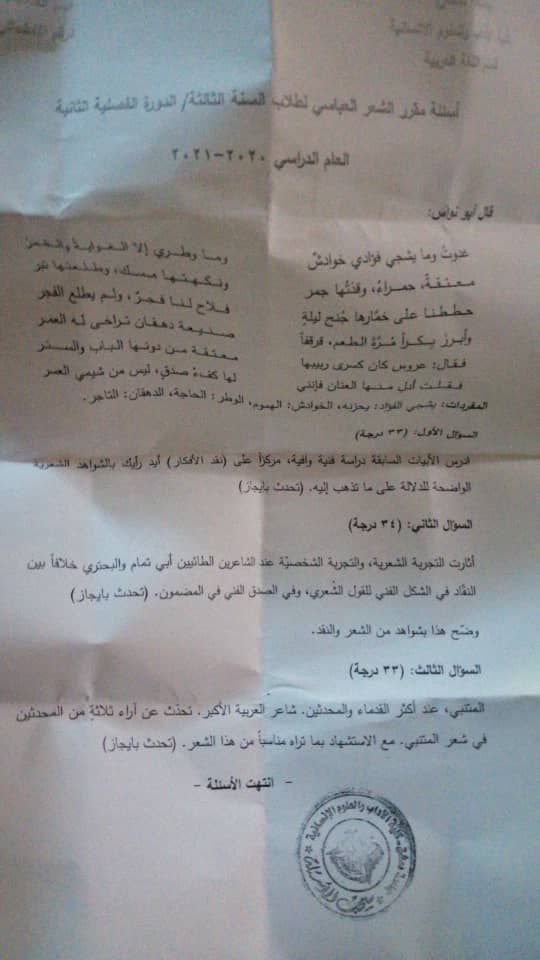 كلية الآداب والعلوم الإنسانية
قسم اللغة العربية
أسئلة مقرر الشعر العباسي لطلاب السنة الثالثة/ الدورة الفصلية الثانية
العام الدراسي ٢٠٢٠-٢٠٢١
قال أبو نواس:
غدوتُ وما يشجي فؤادي خوادشٌ وما وطري إلا الغواية والخمرُ
معتقةٌ، حمراءُ، وقدتُها جمر ونكهتها مسك، وطلعتها تبر
حططنا على خمّارها جُنح ليلةٍ فلاح لنا فجرٌ، ولم يطلع الفجر
وأبرز بكراً مُزّة الطعم، قرقفاً صنيعة دهقان تراخى له العمر
فقال: عروس كان كسرى ربيبها معتقة من دونها الباب والستر
فقلت أدل منها العنان فإنني لها كفءُ صدقٍ، ليس من شيمي العسر
المفردات: يشجي الفؤاد: يحزنه، الخوادش: الهموم، الوطر: الحاجة، الدهقان: التاجر.
السؤال الأول: (٣٣ درجة)
ادرس الأبيات السابقة دراسة فنية وافية، مركزاً على (نقد الأفكار) أيد رأيك بالشواهد الشعرية
الواضحة للدلالة على ما تذهب إليه. (تحدث بايجاز)
السؤال الثاني: (٣٤ درجة)
أثارت التجربة الشعرية، والتجربة الشخصيّة عند الشاعرين الطائيين أبي تمام والبحتري خلافاً بين
النقّاد في الشكل الفني للقول الشّعري، وفي الصدق الفني في المضمون. (تحدث بايجاز)
وضّح هذا بشواهد من الشعر والنقد.
السؤال الثالث: (٣٣ درجة)
المتنبي، عند أكثر القدماء والمحدثين. شاعر العربية الأكبر. تحدّث عن آراء ثلاثةٍ من المحدثين
في شعر المتنبي. مع الاستشهاد بما تراه مناسباً من هذا الشعر. (تحدث بايجاز)
- انتهت الأسئلة -
كلية الآداب والعلوم الإنسانية